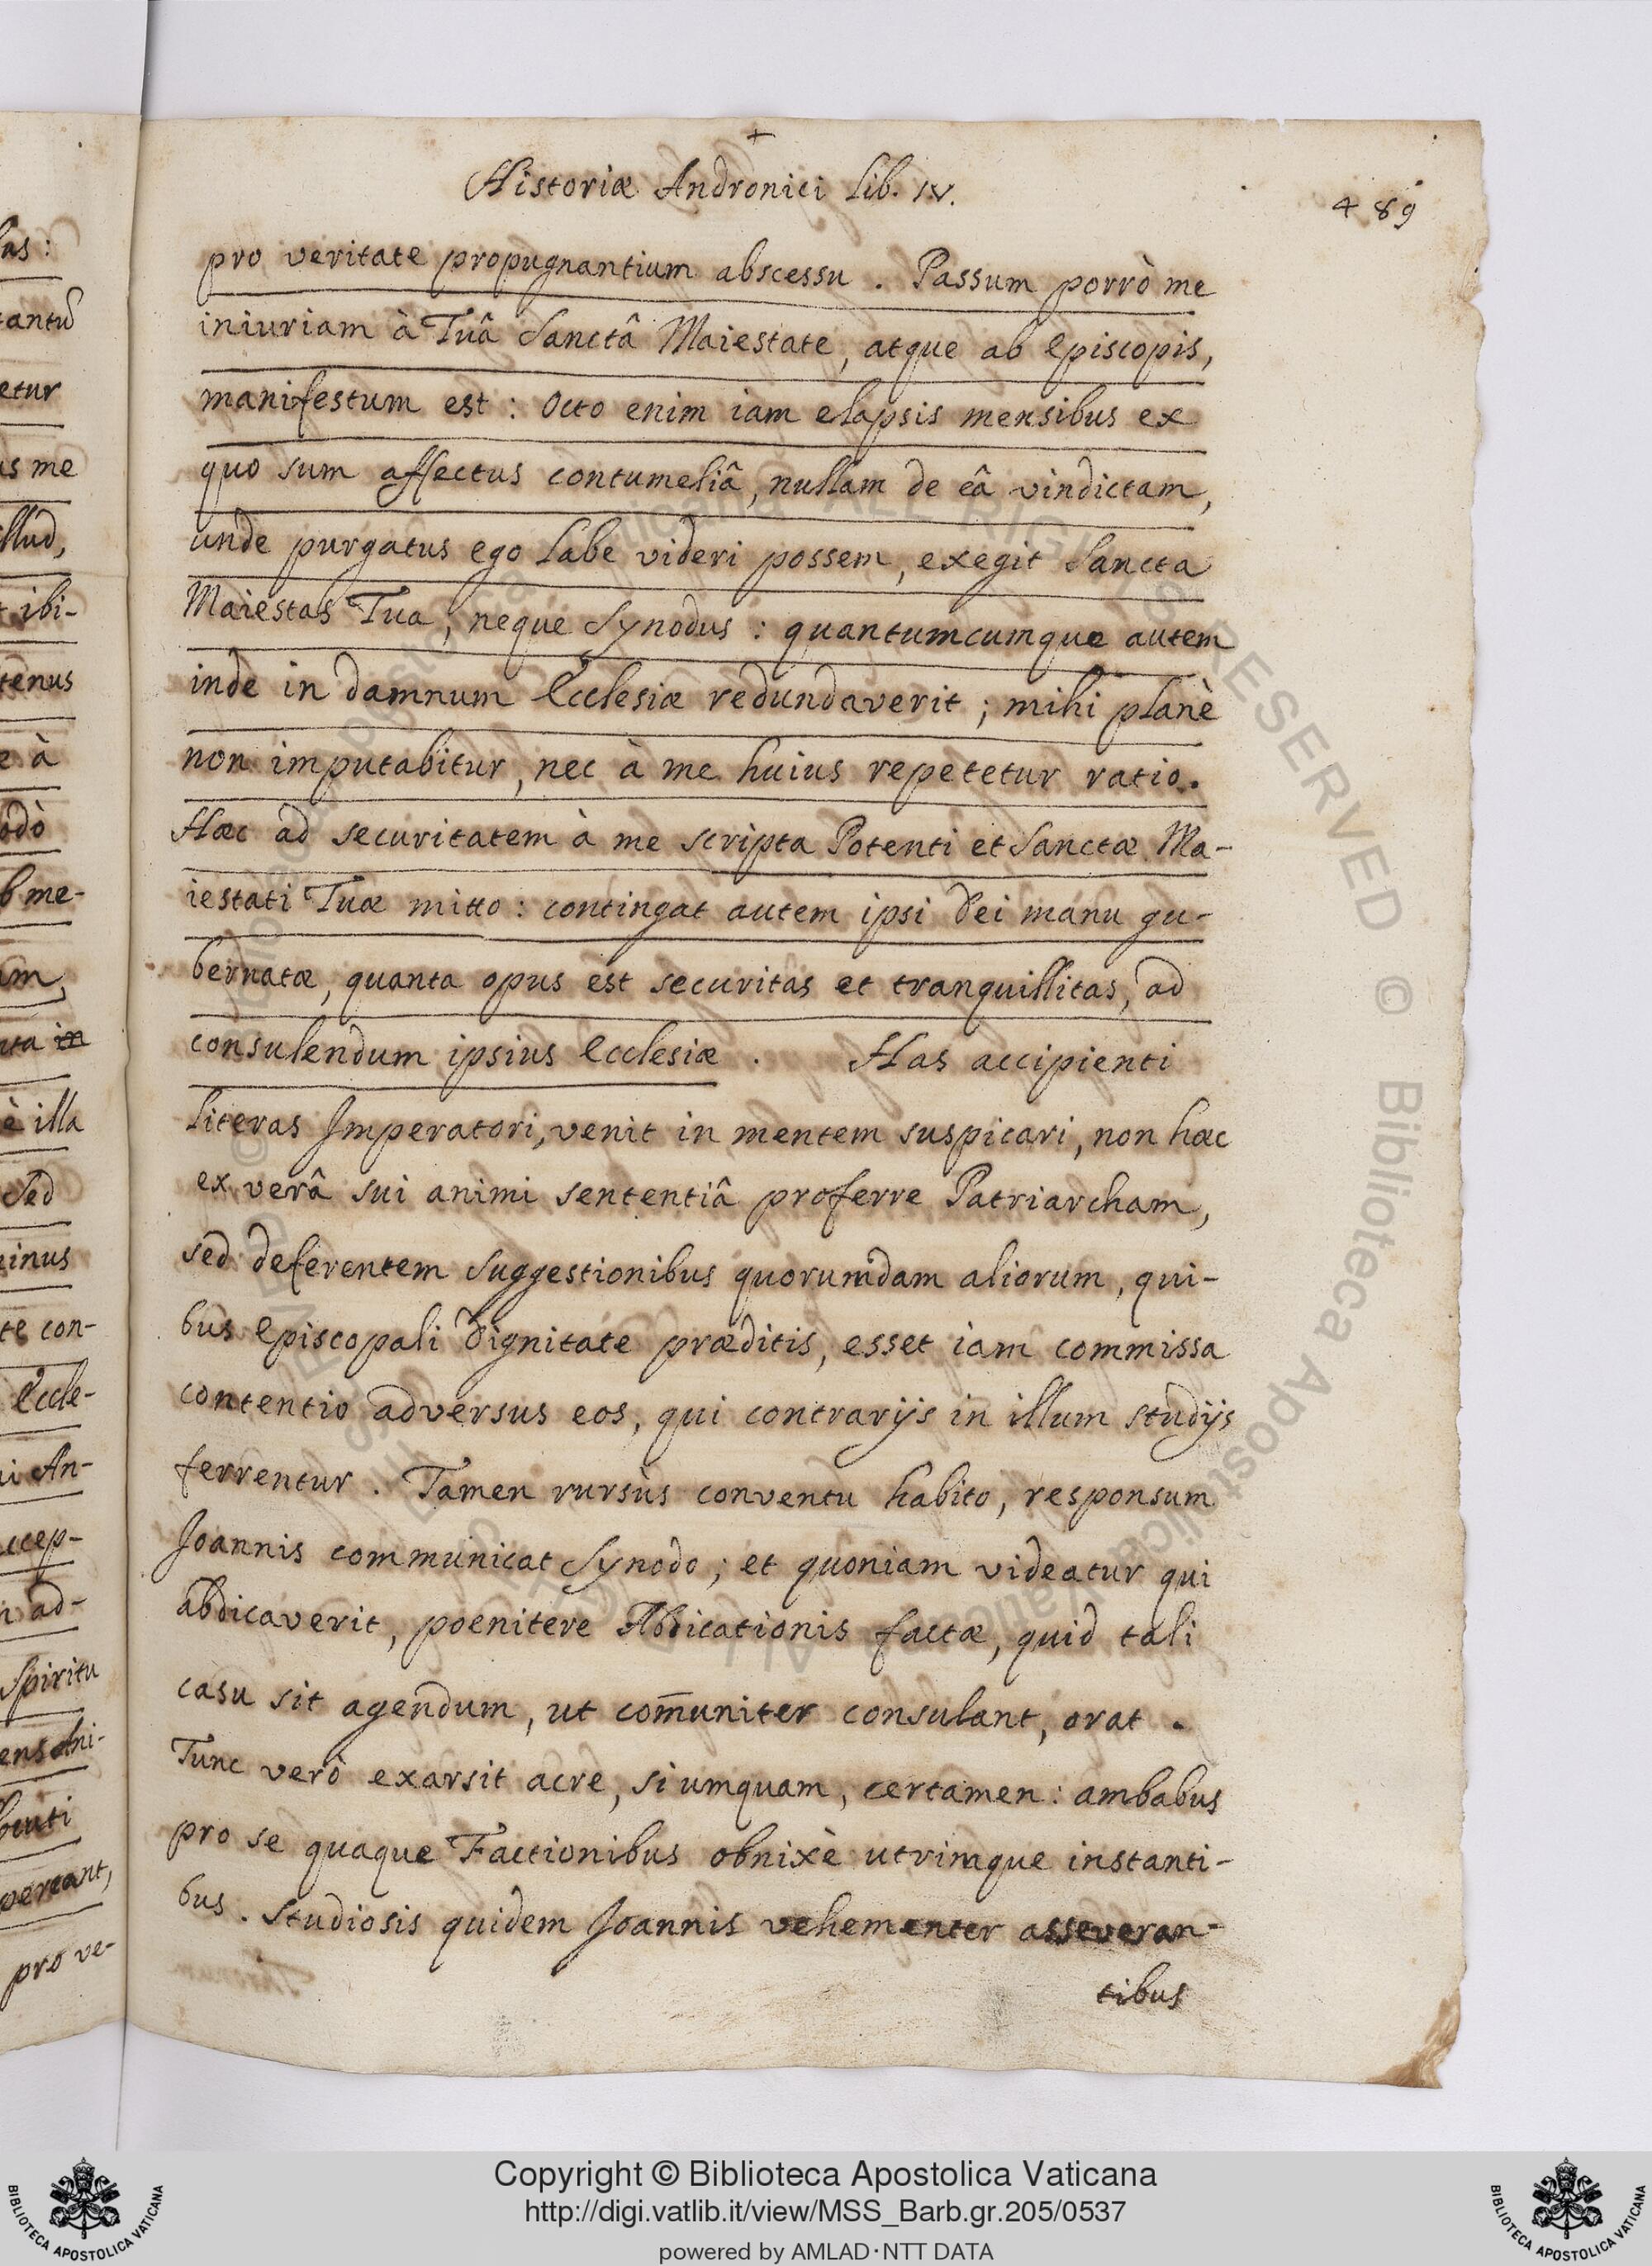 +
Historiæ Andronici Lib. IV.
489
pro veritate propugnantium abscessu. Passum porrò me
iniuriam à Tuâ Sanctâ Maiestate, atque ab Episcopis,
manifestum est: Octo enim iam elapsis mensibus ex
quo sum affectus contumeliâ, nullam de eâ vindictam,
unde purgatus ego labe videri possem, exegit Sancta
Maiestas Tua, neque Synodus: quantumcumque autem
inde in damnum Ecclesiæ redundaverit; mihi planè
non imputabitur, nec à me huius repetetur ratio.
Hæc ad securitatem à me scripta Potenti et Sanctæ Ma-
iestati Tuæ mitto: contingat autem ipsi Dei manu gu-
bernatæ, quanta opus est securitas et tranquillitas, ad
consulendum ipsius Ecclesiæ. Has accipienti
literas Imperatori, venit in mentem suspicari, non hæc
ex verâ sui animi sententiâ proferre Patriarcham,
sed deferentem suggestionibus quorumdam aliorum, qui-
bus Episcopali Dignitate præditis, esset iam commissa
contentio adversus eos, qui contrarijs in illum studijs
ferrentur. Tamen rursùs conventu habito, responsum
Joannis communicat Synodo; et quoniam videatur qui
abdicaverit, poenitere Abdicationis factæ, quid tali
casu sit agendum, ut com̄uniter consulant, orat.
Tunc verò exarsit acre, si umquam, certamen: ambabus
pro se quaque Factionibus obnixè utrimque instanti-
bus. Studiosis quidem Joannis vehementer asseveran-
tibus
as:
tantũ
etur
us me
illud,
t ibi-
tenus
e à
odò
b me-
um,
uta in
è illa
Sed
ninus
te con-
Eccle-
ui An-
ccep-
n ad-
Spiritu
pro ve-
Copyright © Biblioteca Apostolica Vaticana
http://digi.vatlib.it/view/MSS_Barb.gr.205/0537
powered by AMLAD·NTT DATA
BIBLIOTECA APOSTOLICA VATICANA
BIBLIOTECA APOSTOLICA VATICANA